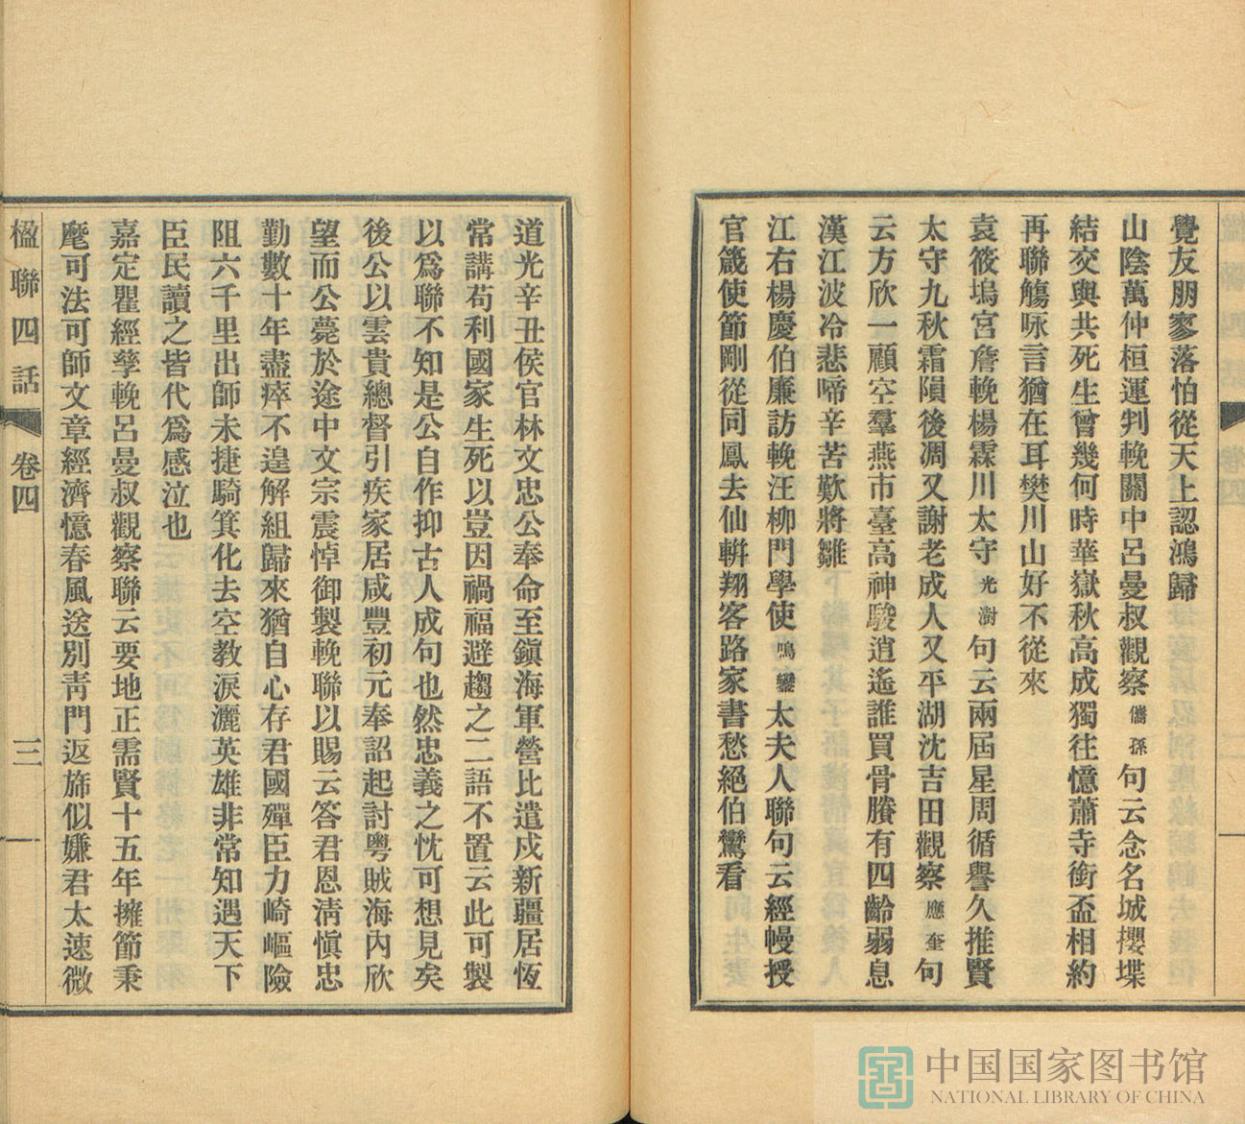 覺友朋寥落怕從天上認鴻歸
山陰萬仲桓運判輓關中呂曼叔觀察儁孫句云念名城攖堞
結交與共死生曾幾何時華嶽秋高成獨往憶蕭寺銜盃相約
再聯觴咏言猶在耳樊川山好不從來
袁筱塢宮詹輓楊霖川太守光澍句云兩屆星周循譽久推賢
太守九秋霜隕後凋又謝老成人又平湖沈吉田觀察應奎句
云方欣一顧空羣燕市臺高神駿逍遙誰買骨賸有四齡弱息
漢江波冷悲啼辛苦歎將雛
江右楊慶伯廉訪輓汪柳門學使鳴鑾太夫人聯句云經幔授
官箴使節剛從同鳳去仙輧翔客路家書愁絕伯鸞看
道光辛丑侯官林文忠公奉命至鎭海軍營比遣戍新疆居恆
常講苟利國家生死以豈因禍福避趨之二語不置云此可製
以爲聯不知是公自作抑古人成句也然忠義之忱可想見矣
後公以雲貴總督引疾家居咸豐初元奉詔起討粤賊海內欣
望而公薨於途中文宗震悼御製輓聯以賜云答君恩淸愼忠
勤數十年盡瘁不遑解組歸來猶自心存君國殫臣力崎嶇險
阻六千里出師未捷騎箕化去空教淚灑英雄非常知遇天下
臣民讀之皆代爲感泣也
嘉定瞿經孳輓呂曼叔觀察聯云要地正需賢十五年擁節秉
麾可法可師文章經濟憶春風送別靑門返旆似嫌君太速微
楹聯四話
卷四
三
中国国家图书馆
NATIONAL LIBRARY OF CHINA